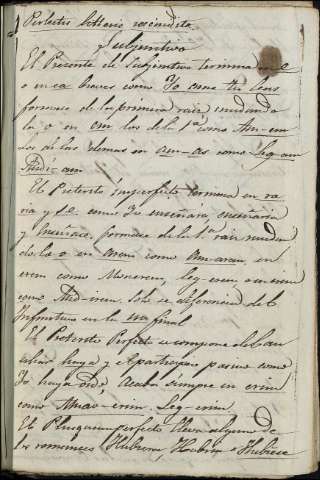 Subjuntivo
El Presente de Subjuntivo termina en e
o en ea breves como Yo ame tu leas
formase de la primera raiz mudando
la o en em los de la 1ª como Am-em
los de las demas en am-as como Leg-am
Audi-am
El Preterito imperfecto termina en ra
ria y se como Yo enseñara, enseñaria
y enseñase, formase de la 1ª raiz mudan
do la o en arem como Am-arem, en
erem como Monerem, Leg-erem o en irem
como Aud-irem. Este se diferencia del
Infinitivo en la m final
El Preterito Perfecto se compone de
haya y el Participio pasivo como
Yo haya oido, Acaba siempre en erim
como Amav-erim, Leg-erim.
El Plusquamperfecto lleva alguno de
los romances Hubiera, Habria o Hubiese